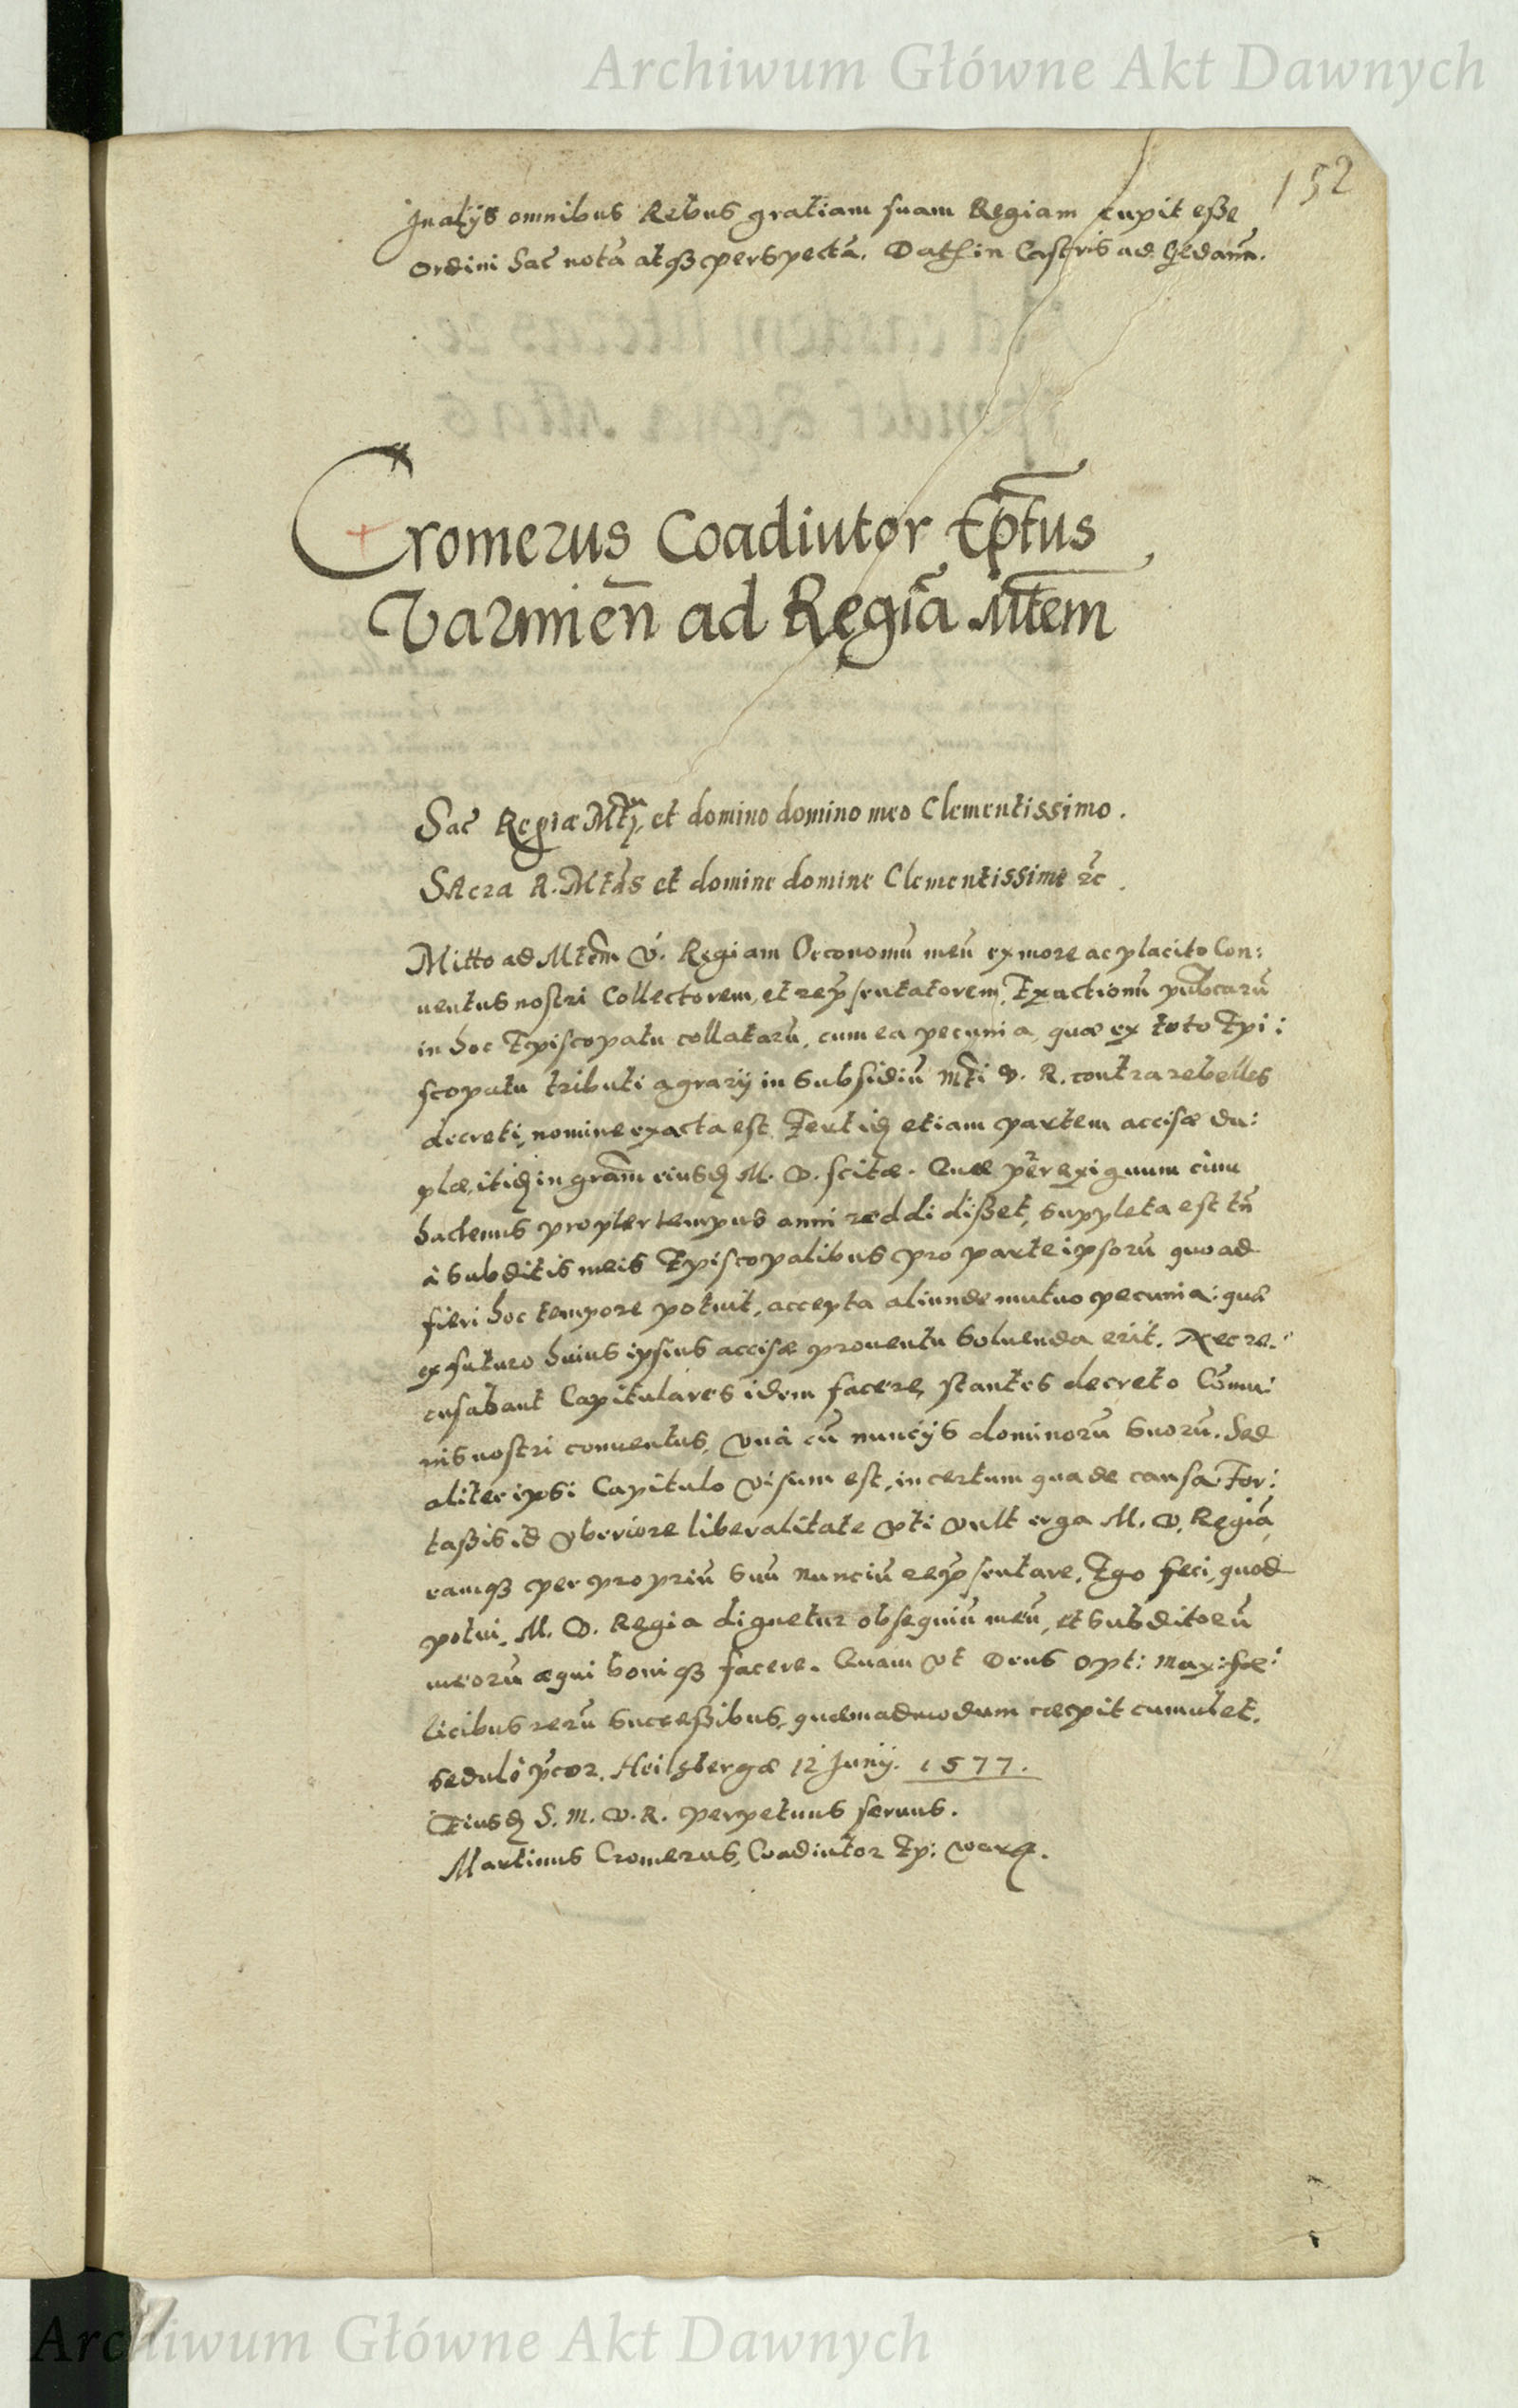 Archiwum Główne Akt Dawnych
152
In alijs omnibus Rebus gratiam suam Regiam cupit eße
Ordini Sac̃ notã atqȝ perspectã. Dat̃ in Castris ad Gedanũ.
Cromerus Coadiutor Ep̃tus
Varmien̄ ad Regiã Mt̃em
Sac̃ Regiæ Mti, et domino domino meo Clementissimo.
Sacra R. Mtãs et domine domine Clementissime ⁊c̃.
Mitto ad Mtẽm V. Regiam Oeconomũ meũ ex more ac placito Con:
uentus nostri Collectorem, et rep̃sentatorem, Exactionũ pub̃carũ
in hoc Episcopatu collatarũ, cum ea pecunia, quæ ex toto Epi:
scopatu tributi agrarij in subsidiũ Mt̃i V. R. contra rebelles
decreti, nomine exacta est. Tertiã etiam partem accisæ du:
plæ, itidẽ in gra͠m eiusdẽ M. V. scitæ. Quæ p̃ter exiguum cum
hactenus propter tempus anni reddidißet, suppleta est tñ
à subditis meis Episcopalibus pro parte ipsorũ quoad
fieri hoc tempore potuit, accepta aliunde mutuo pecunia: quæ
ex futuro huius ipsius accisæ prouentu soluenda erit. Nec re:
cusabant Capitulares idem facere, stantes decreto Com̃u:
nis nostri conuentus, vnà cũ nuncijs dominorũ suorũ. Sed
aliter ipsi Capitulo visum est, incertum qua de causa. For:
taßis id vberiore liberalitate vti vult erga M. V. Regiã,
eamqȝ per propriũ suũ nunciũ rep̃sentare. Ego feci, quod
potui. M. V. Regia dignetur obsequiũ meũ, et subditorũ
meorũ æqui boniqȝ facere. Quam vt Deus Opt: Max: fæ:
licibus rerũ succeßibus, quemadmodum cæpit cumulet,
sedulò p̃cor. Heilsbergæ 12 Junij. 1577.
Eiusdẽ S. M. V. R. perpetuus seruus.
Martinus Cromerus, Coadiutor Ep: Warm̃.
Archiwum Główne Akt Dawnych